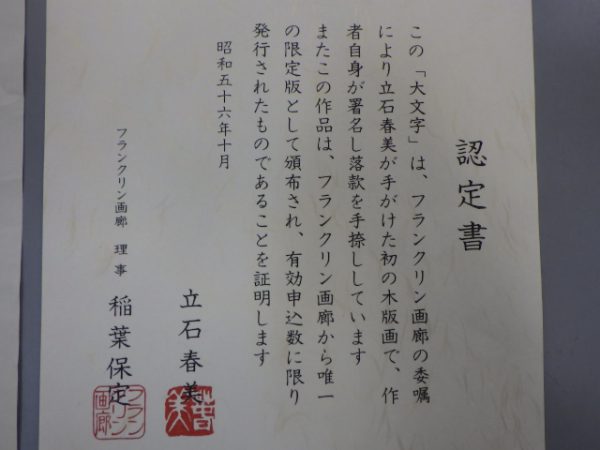 認定書
この「大文字」は、フランクリン画廊の委嘱
により立石春美が手がけた初の木版画で、作
者自身が署名し落款を手捺ししています
またこの作品は、フランクリン画廊から唯一
の限定版として頒布され、有効申込数に限り
発行されたものであることを証明します
昭和五十六年十月
立石春美
春美
フランクリン画廊 理事 稲葉保定
フランクリン画廊